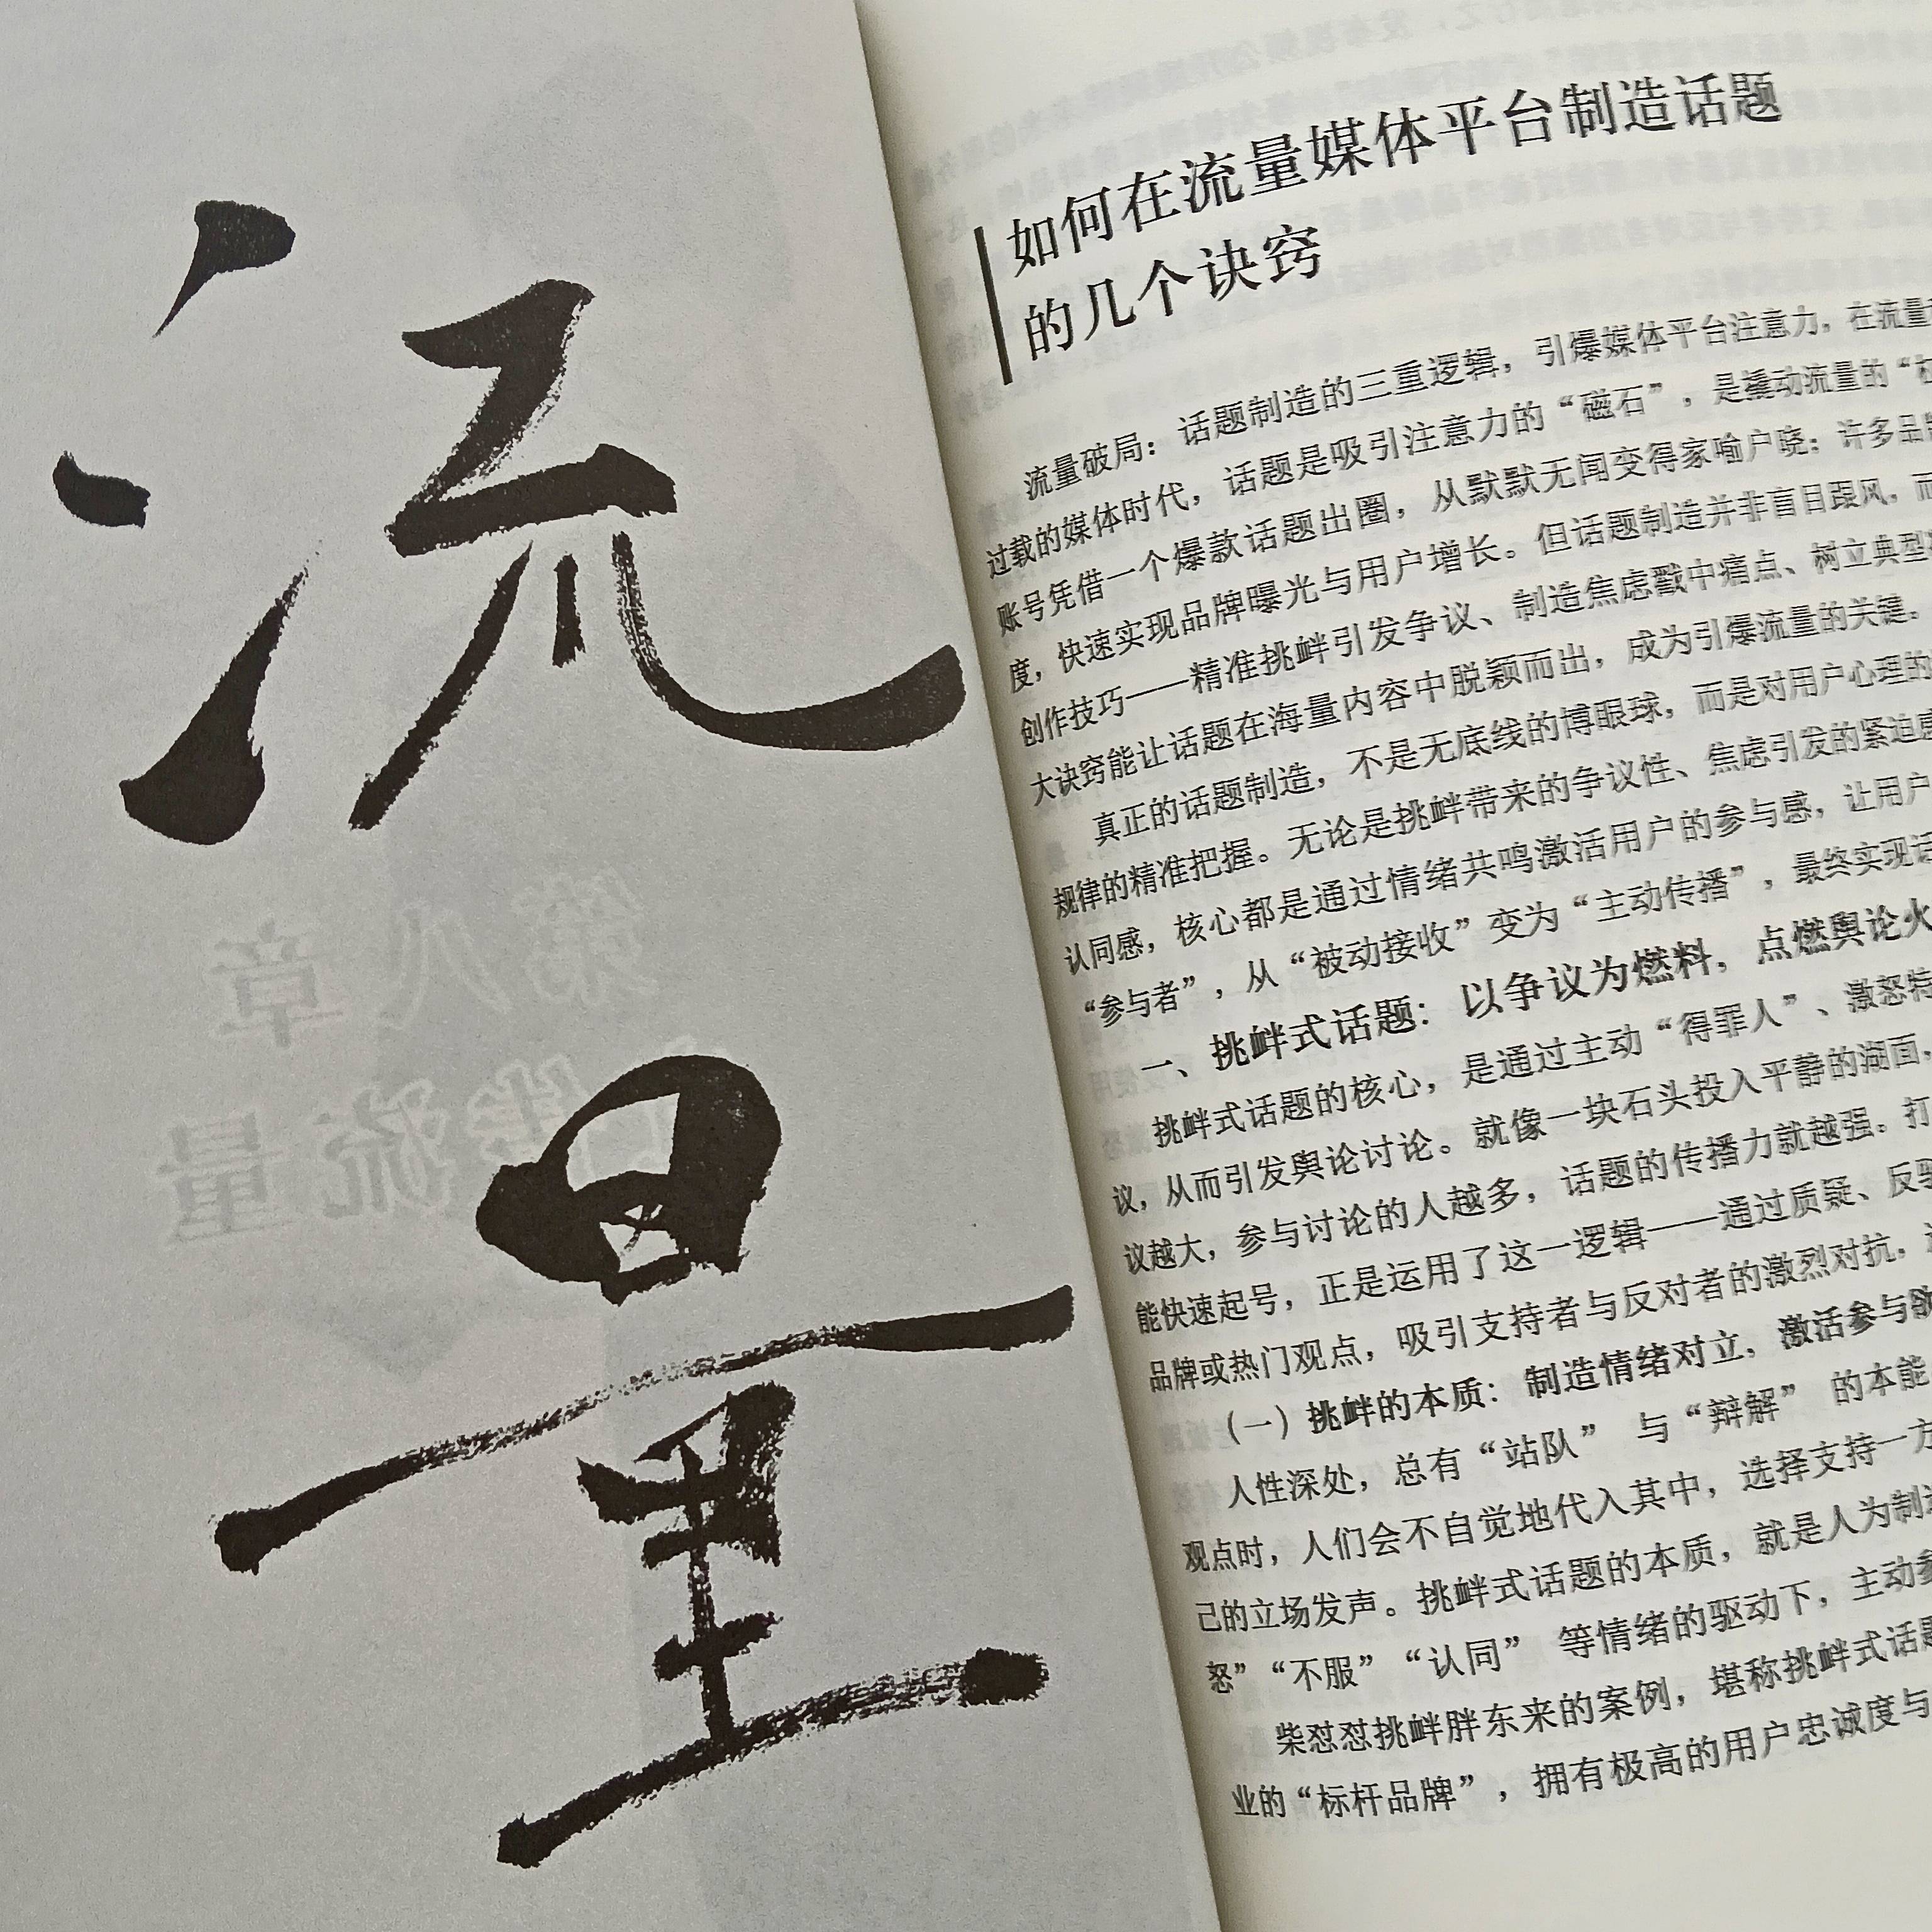 流量
如何在流量媒体平台制造话题
的几个诀窍
流量破局：话题制造的三重逻辑，引爆媒体平台注意力。在流量
过载的媒体时代，话题是吸引注意力的“磁石”，是撬动流量的“
账号凭借一个爆款话题出圈，从默默无闻变得家喻户晓；许多品牌
度，快速实现品牌曝光与用户增长。但话题制造并非盲目跟风，而
创作技巧——精准挑衅引发争议、制造焦虑戳中痛点、树立典型
大诀窍能让话题在海量内容中脱颖而出，成为引爆流量的关键。
真正的话题制造，不是无底线的博眼球，而是对用户心理的
规律的精准把握。无论是挑衅带来的争议性、焦虑引发的紧迫感
认同感，核心都是通过情绪共鸣激活用户的参与感，让用户
“参与者”，从“被动接收”变为“主动传播”，最终实现话
一、挑衅式话题：以争议为燃料，点燃舆论火
挑衅式话题的核心，是通过主动“得罪人”、激怒特
议，从而引发舆论讨论。就像一块石头投入平静的湖面，
议越大，参与讨论的人越多，话题的传播力就越强。打
能快速起号，正是运用了这一逻辑——通过质疑、反驳
品牌或热门观点，吸引支持者与反对者的激烈对抗，
（一）挑衅的本质：制造情绪对立，激活参与欲
人性深处，总有“站队” 与“辩解” 的本能
观点时，人们会不自觉地代入其中，选择支持一方
己的立场发声。挑衅式话题的本质，就是人为制造
怒”“不服”“认同” 等情绪的驱动下，主动参
柴怼怼挑衅胖东来的案例，堪称挑衅式话题
业的“标杆品牌”，拥有极高的用户忠诚度与